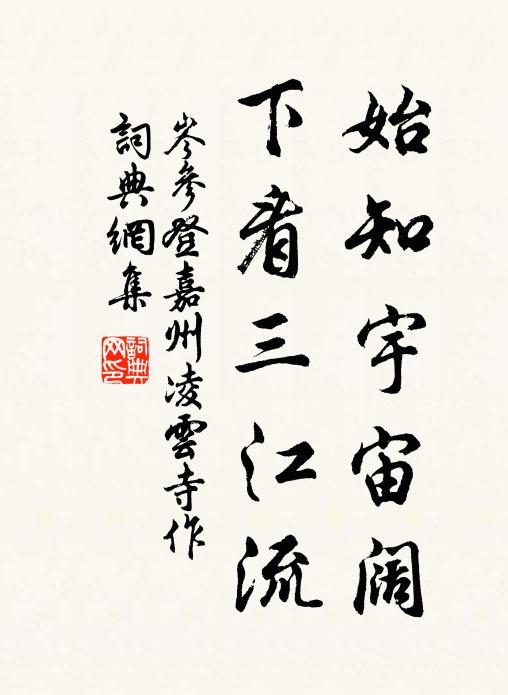 始知宇宙阔
下看三江流
岑參登嘉州凌雲寺作
詞典網集
詞典
网印